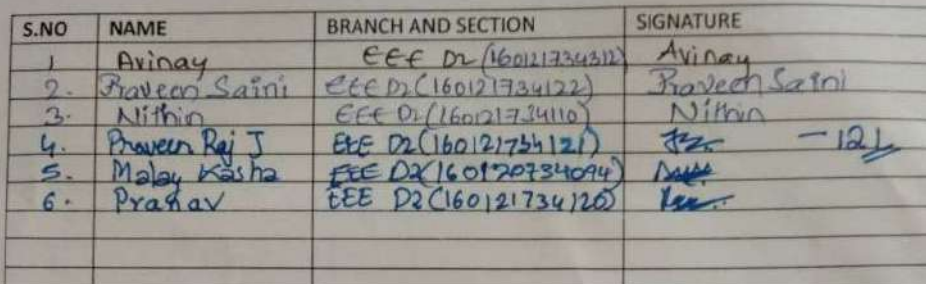 S.NO NAME BRANCH AND SECTION SIGNATURE
1 Avinay EEE D2 (160121734312) Avinay
2. Praveen Saini EEE D2 (160121734122) Praveen Saini
3. Nithin EEE D2 (160121734110) Nithin
4. Praveen Raj J EEE D2 (160121734121) - 121
5. Malay Kasha EEE D2 (160120734094)
6. Pranav EEE D2 (160121734120)